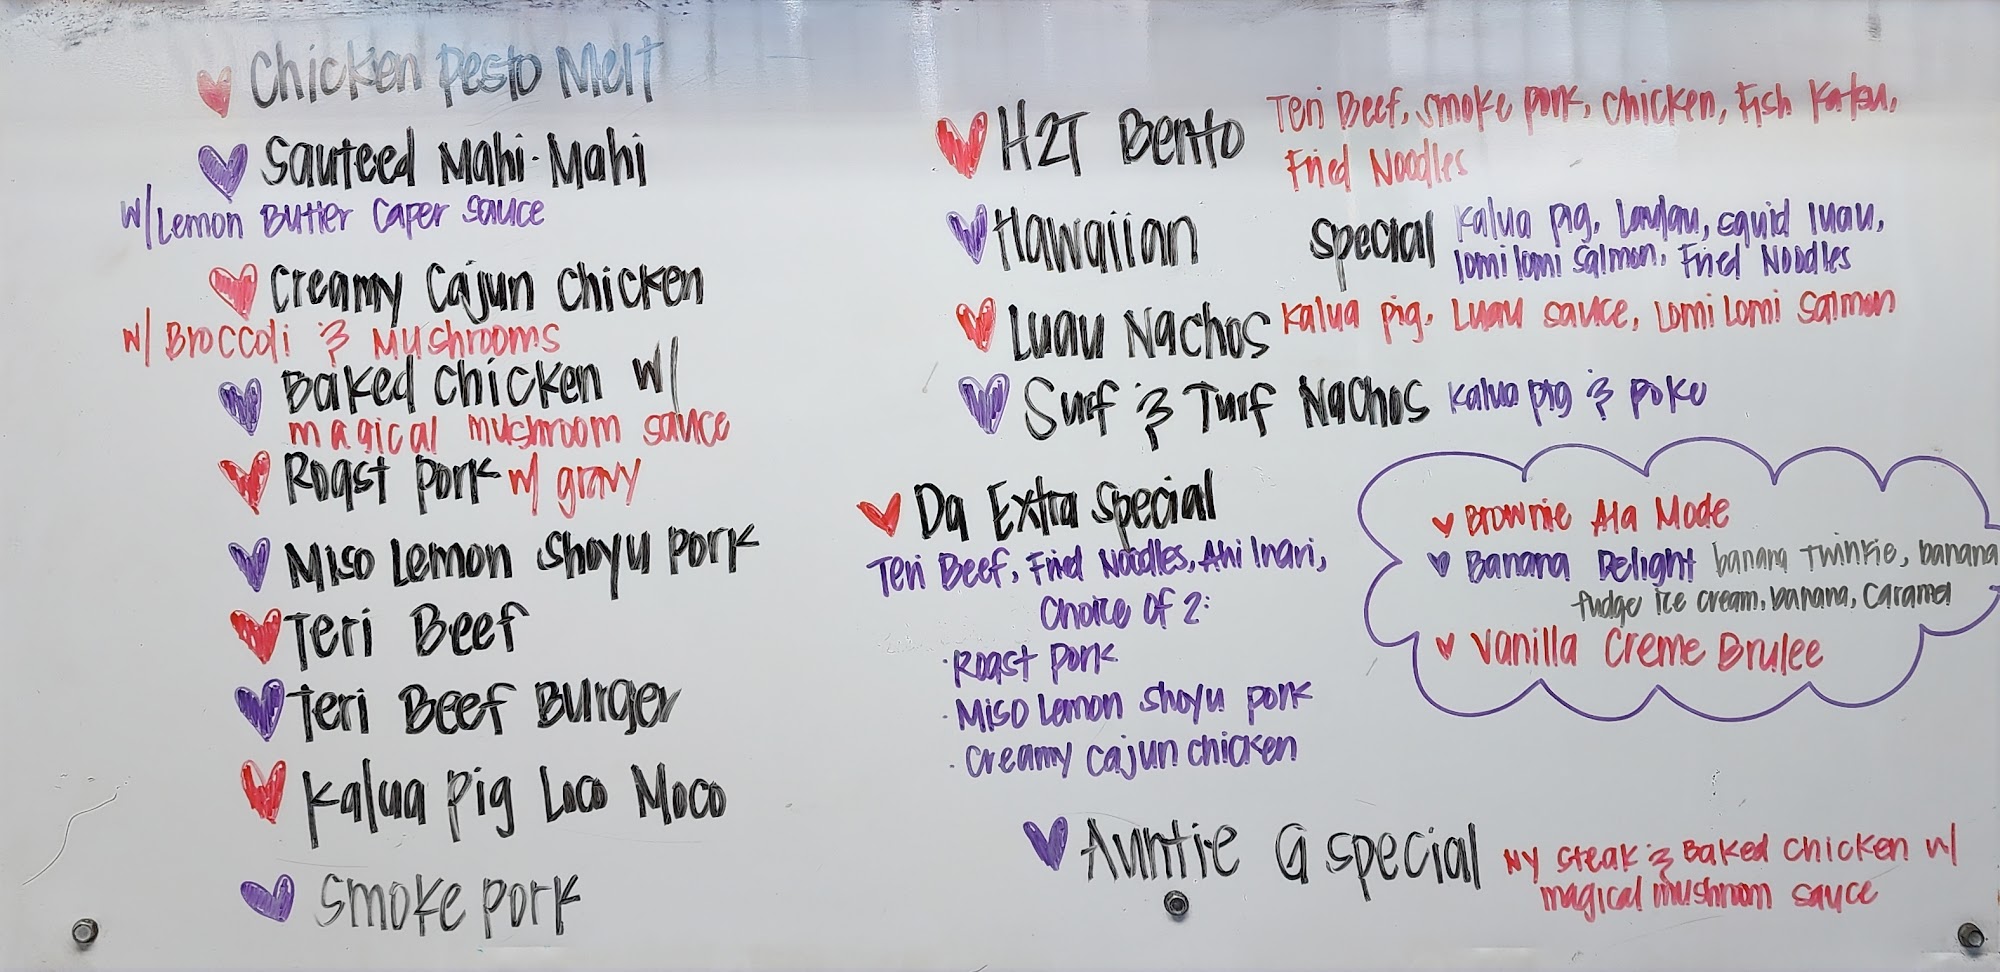 Chicken Pesto Melt
Sauteed Mahi-Mahi
w/ Lemon Butter Caper sauce
Creamy Cajun Chicken
w/ Broccoli & Mushrooms
Baked Chicken w/
magical mushroom sauce
Roast Pork w/ gravy
Miso Lemon Shoyu Pork
Teri Beef
Teri Beef Burger
Kalua Pig Loco Moco
Smoke Pork
H2T Bento Teri Beef, Smoke Pork, Chicken, Fish Katsu,
Fried Noodles
Hawaiian Special Kalua Pig, Laulau, squid luau,
lomi lomi salmon, Fried Noodles
Luau Nachos Kalua pig, Luau sauce, Lomi Lomi Salmon
Surf & Turf Nachos Kalua pig & poke
Da Extra Special
Teri Beef, Fried Noodles, Ahi Inari,
Choice of 2:
· Roast Pork
· Miso Lemon Shoyu Pork
· Creamy Cajun Chicken
Brownie Ala Mode
Banana Delight banana Twinkie, banana
fudge ice cream, banana, Caramel
Vanilla Creme Brulee
Auntie G Special NY Steak & Baked Chicken w/
magical mushroom sauce